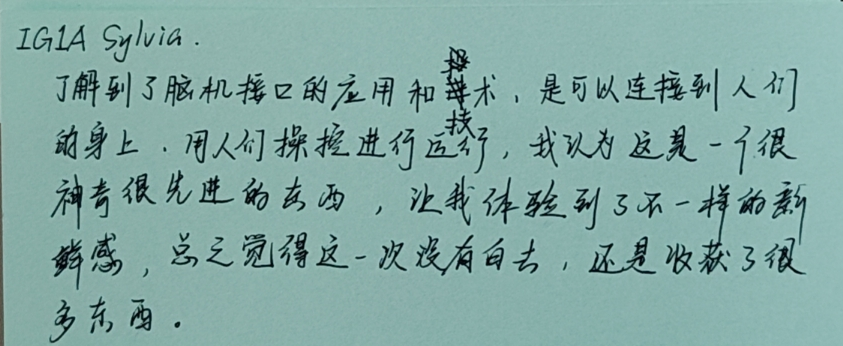 IG1A Sylvia.
了解到了脑机接口的应用和技术，是可以连接到人们
的身上，用人们操控进行运行，我认为这是一个很
神奇很先进的东西，让我体验到了不一样的新
鲜感，总之觉得这一次没有白去，还是收获了很
多东西。